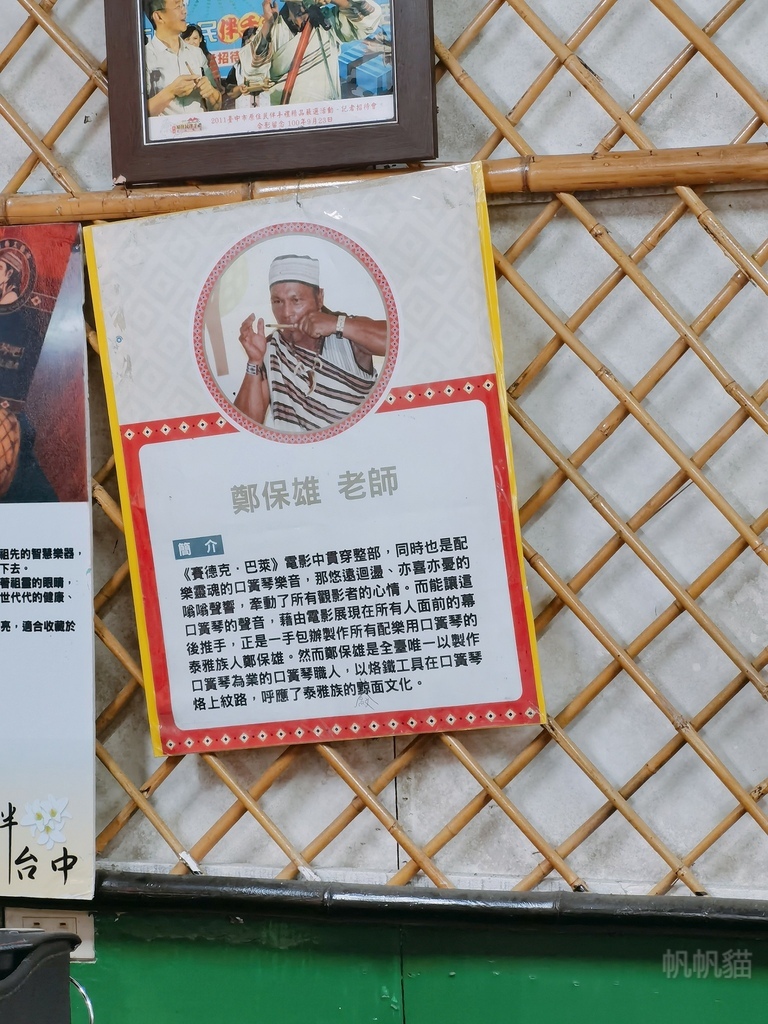 伴手
招待
2011臺中市原住民伴手禮精品甄選活動-記者招待會
合影留念 100年9月23日
鄭保雄 老師
簡 介
《賽德克．巴萊》電影中貫穿整部，同時也是配
樂靈魂的口簧琴樂音，那悠遠迴盪、亦喜亦憂的
嗡嗡聲響，牽動了所有觀影者的心情。而能讓這
口簧琴的聲音，藉由電影展現在所有人面前的幕
後推手，正是一手包辦製作所有配樂用口簧琴的
泰雅族人鄭保雄。然而鄭保雄是全臺唯一以製作
口簧琴為業的口簧琴職人，以烙鐵工具在口簧琴
烙上紋路，呼應了泰雅族的黥面文化。
祖先的智慧樂器，
下去。
著祖靈的眼睛，
世代代的健康、
亮，適合收藏於
伴
台中
帆帆貓